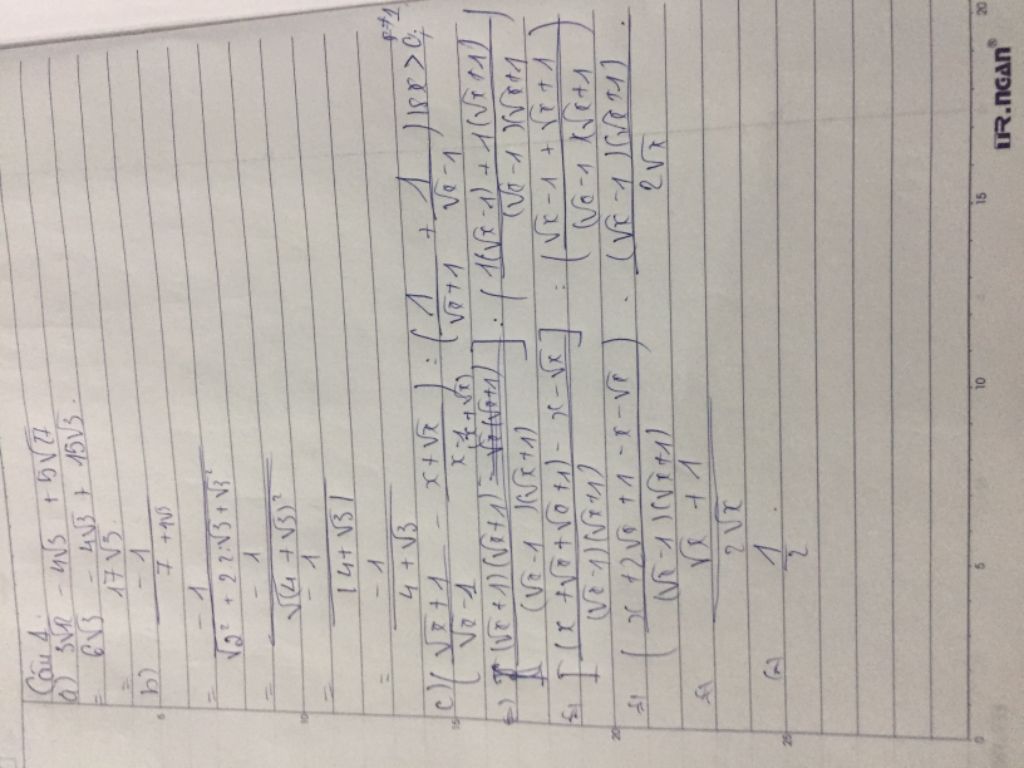 Câu 1.
a) 3√12 - 4√3 + 5√27
= 6√3 - 4√3 + 15√3.
= 17√3.
b) -1 / 7 + 4√3
= -1 / √2² + 2.2.√3 + √3²
= -1 / √(4 + √3)²
= -1 / |4 + √3|
= -1 / 4 + √3
c) (√x + 1 / √x - 1 - x + √x / ) : (1 / √x + 1 + 1 / √x - 1) x > 0; x ≠ 1
⇔ [(√x + 1)(√x + 1) - / (√x - 1)(√x + 1)] : (1(√x - 1) + 1(√x + 1) / (√x - 1)(√x + 1))
⇔ [(x + √x + √x + 1) - x - √x / (√x - 1)(√x + 1)] : (√x - 1 + √x + 1 / (√x - 1)(√x + 1))
⇔ (x + 2√x + 1 - x - √x / (√x - 1)(√x + 1)) . (√x - 1)(√x + 1) / 2√x .
⇔ √x + 1 / 2√x
⇔ 1 / 2 .
TR.NGAN®
5
10
15
20
25
0
5
10
15
20